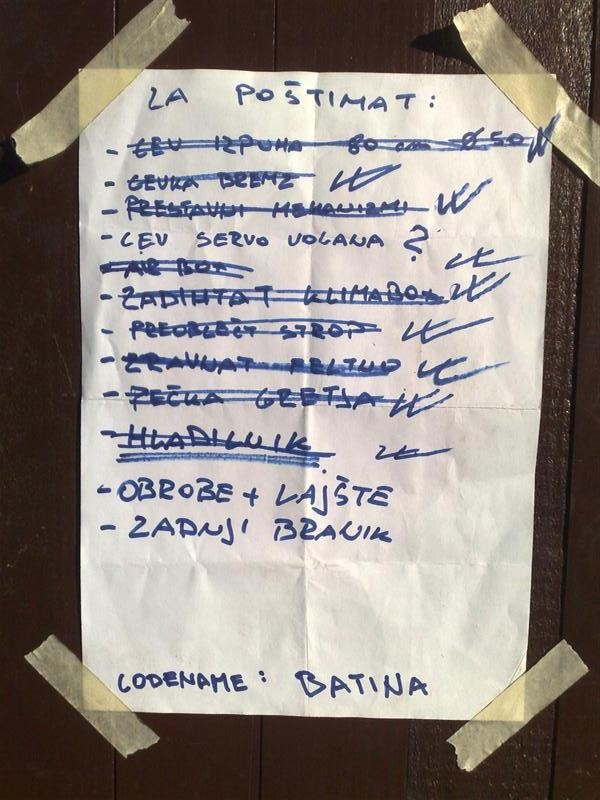 ZA POŠTIMAT:
- CEV IZPUHA 80 cm Ø 50
- CEVKA BREMZ
- PRESTAVNI MEHANIZMI
- CEV SERVO VOLANA ?
- AIR BOX
- ZADIHTAT KLIMABOX
- PREOBLEČT STROP
- ZRAVNAT FELTNO
- PEČKA GRETJA
- HLADILNIK
- OBROBE + LAJŠTE
- ZADNJI BRANIK
CODENAME: BATINA